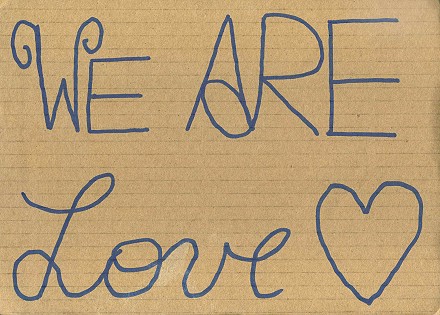 WE ARE
Love